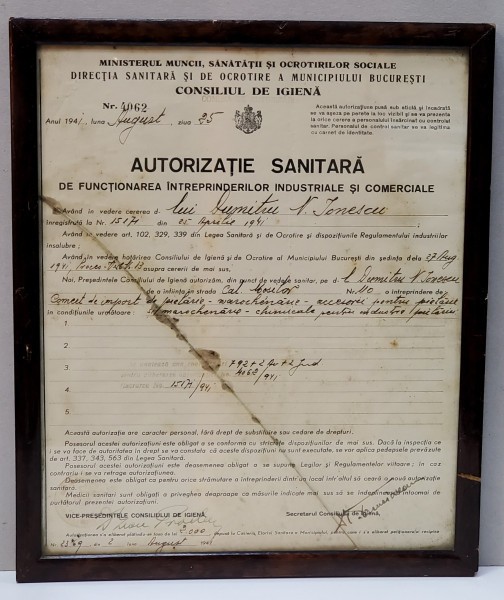 MINISTERUL MUNCII, SĂNĂTĂȚII ȘI OCROTIRILOR SOCIALE
DIRECȚIA SANITARĂ ȘI DE OCROTIRE A MUNICIPIULUI BUCUREȘTI
CONSILIUL DE IGIENĂ
Nr. 4062
Anul 1941, luna August, ziua 25
Această autorizațiune pusă sub sticlă și încadrată
se va așeza pe perete la loc vizibil și se va prezenta
la orice cerere a personalului însărcinat cu controlul
sanitar. Personalul de control sanitar se va legitima
cu carnet de identitate.
AUTORIZAȚIE SANITARĂ
DE FUNCȚIONAREA ÎNTREPRINDERILOR INDUSTRIALE ȘI COMERCIALE
Având în vedere cererea d-lui Dumitru N. Ionescu
înregistrată la Nr. 15171 din 25 Aprilie 1941
Având în vedere art. 102, 329, 339 din Legea Sanitară și de Ocrotire și dispozițiunile Regulamentului industriilor
insalubre;
Având în vedere hotărîrea Consiliului de Igienă și de Ocrotire al Municipiului București din ședința dela
1941 asupra cererii de mai sus,
Noi, Președintele Consiliului de Igienă autorizăm, din punct de vedere sanitar, pe d-l Dumitru N. Ionescu
de a înființa în strada Cal. Moșilor No. 110 o întreprindere de
Comerț de import de pielărie - marochinărie - accesorii pentru pielărie
în condițiunile următoare: și marochinărie - chimicale pentru industria pielăriei
1
2
3
4
5
15171/941
4062/941
Această autorizație are caracter personal, fără drept de substituire sau cedare de drepturi.
Posesorul acestei autorizațiuni este obligat a se conforma cu strictețe dispozițiunilor de mai sus. Dacă la inspecția ce
i se va face de autoritatea în drept se va constata că aceste dispozițiuni nu sunt executate, se vor aplica pedepsele prevăzute
de art. 337, 343, 563 din Legea Sanitară.
Posesorul acestei autorizațiuni este deasemenea obligat a se supune Legilor și Regulamentelor viitoare; în caz
contrariu i se va retrage autorizația.
Deasemenea este obligat ca pentru orice strămutare a întreprinderii dintr'un local într'altul să ceară o nouă autorizație
sanitară.
Medicii sanitari sunt obligați a priveghea deaproape ca măsurile indicate mai sus să se îndeplinească informat de
purtătorul prezentei autorizațiuni.
VICE-PREȘEDINTELE CONSILIULUI DE IGIENĂ,
Secretarul Consiliului de Igienă,
August 1941